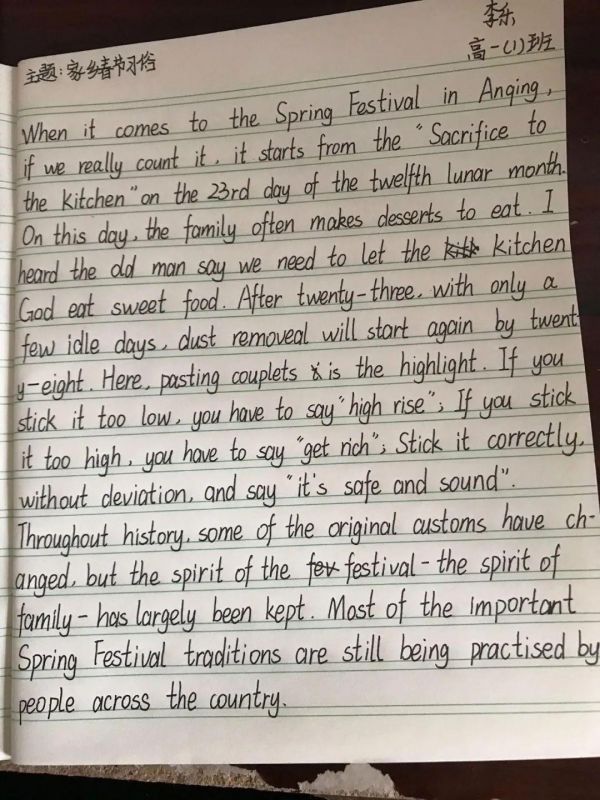 李乐
高一(1)班
主题:家乡春节习俗
When it comes to the Spring Festival in Anqing,
if we really count it, it starts from the "Sacrifice to
the kitchen" on the 23rd day of the twelfth lunar month.
On this day, the family often makes desserts to eat. I
heard the old man say we need to let the kitchen
God eat sweet food. After twenty-three, with only a
few idle days, dust removeal will start again by twent
y-eight. Here, pasting couplets is the highlight. If you
stick it too low, you have to say "high rise"; If you stick
it too high, you have to say "get rich"; Stick it correctly,
without deviation, and say "it's safe and sound".
Throughout history, some of the original customs have ch-
anged, but the spirit of the festival - the spirit of
family - has largely been kept. Most of the important
Spring Festival traditions are still being practised by
people across the country.